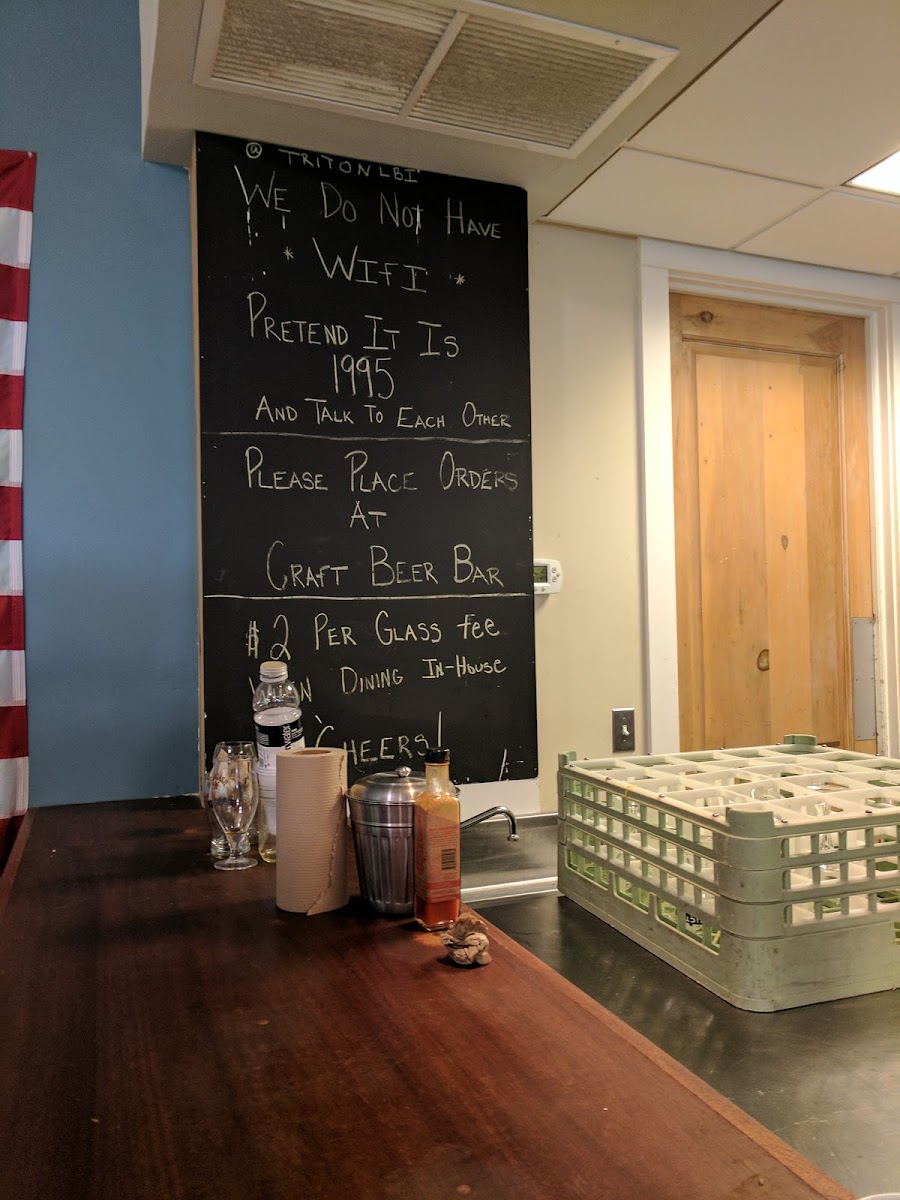 @ TRITONLBI
WE DO NOT HAVE
* WIFI *
PRETEND IT IS
1995
AND TALK TO EACH OTHER
PLEASE PLACE ORDERS
AT
CRAFT BEER BAR
$2 PER GLASS fee
DINING IN-HOUSE
CHEERS!